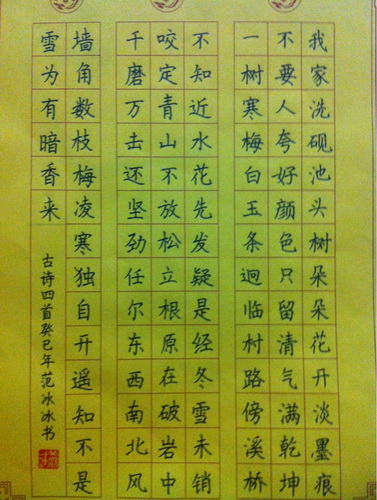 我家洗砚池头树朵朵花开淡墨痕
不要人夸好颜色只留清气满乾坤
一树寒梅白玉条迥临村路傍溪桥
不知近水花先发疑是经冬雪未销
咬定青山不放松立根原在破岩中
千磨万击还坚劲任尔东西南北风
墙角数枝梅凌寒独自开遥知不是
雪为有暗香来
古诗四首癸巳年范冰冰书